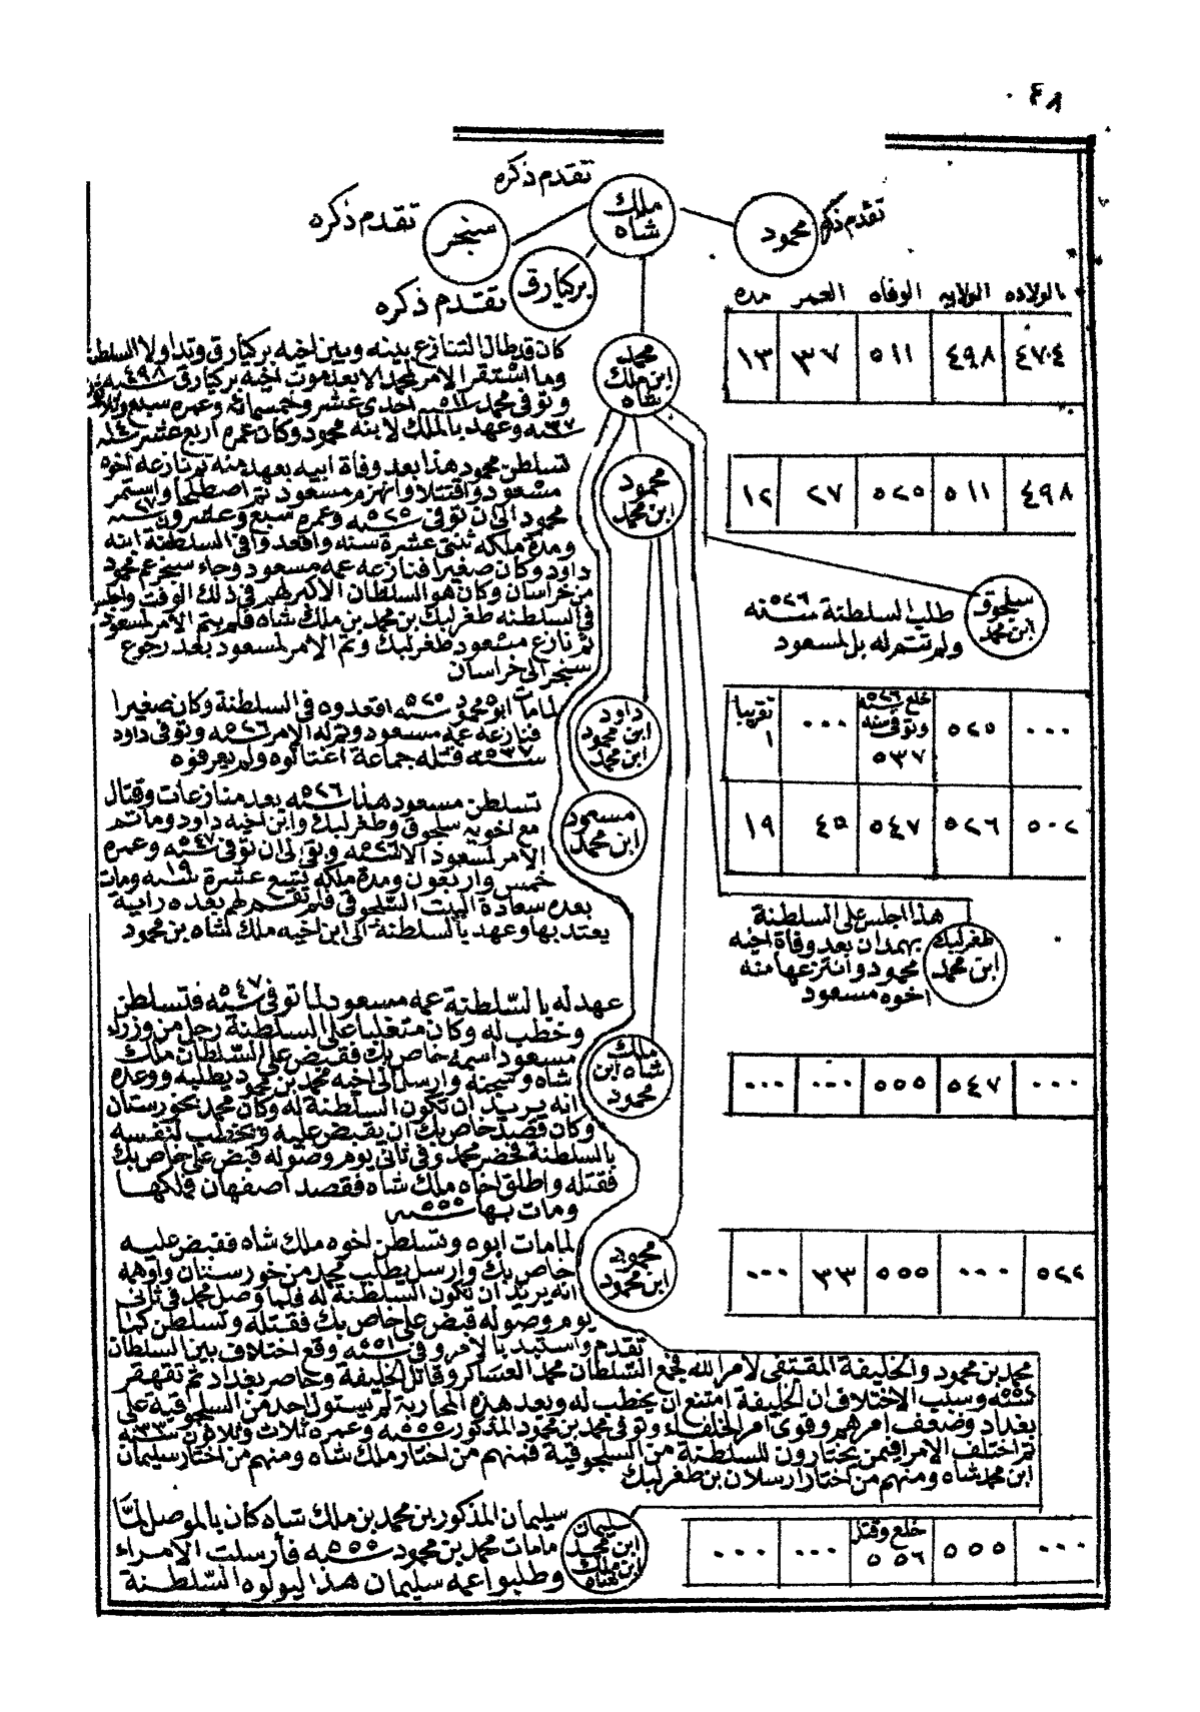 ٤٨
تقدم ذكره
ملك شاه
محمود
تقدم ذكره
سنجر
تقدم ذكره
بركيارق
تقدم ذكره
الولاده الولايه الوفاه العمر مده
٤٧٤ ٤٩٨ ٥١١ ٣٧ ١٣
محمد ابن ملك شاه
كان قد طال التنازع بينه وبين اخيه بركيارق وتداولا السلطنة
وما استقر الامر لمحمد الا بعد موت اخيه بركيارق سنة ٤٩٨
وتوفى محمد سنة ٥١١ احدى عشر وخمسمائة وعمره سبع وثلاثون
سنه ٣٧ وعهد بالملك لابنه محمود وكان عمره اربع عشر سنه
٤٩٨ ٥١١ ٥٢٥ ٢٧ ١٢
محمود ابن محمد
تسلطن محمود هذا بعد وفاة ابيه بعهد منه ثم نازعه اخوه
مسعود واقتتلا وانهزم مسعود ثم اصطلحا واستمر
محمود الى ان توفى سنه ٥٢٥ وعمره سبع وعشرون سنه ٢٧
ومدة ملكه ثنتى عشرة سنه واقعدوا فى السلطنة ابنه
داود وكان صغيرا فنازعه عمه مسعود وجاء سنجر عم محمود
من خراسان وكان هو السلطان الاكبر لهم فى ذلك الوقت واجلس
فى السلطنه طغرلبك بن محمد بن ملك شاه فلم يتم الامر لمسعود
ثم نازع مسعود طغرلبك وتم الامر لمسعود بعد رجوع
سنجر الى خراسان
سلجوق ابن محمد
طلب السلطنة سنه ٥٢٦
ولم تتم له بل لمسعود
داود ابن محمود ابن محمد
لما مات ابوه محمود سنه ٥٢٥ اقعدوه فى السلطنة وكان صغيرا
فنازعه عمه مسعود وتم له الامر سنه ٥٢٦ وتوفى داود
سنه ٥٣٧ قتله جماعة اغتالوه ولم يعرفوه
٠٠٠ ٥٢٥ خلع سنه ٥٢٦ وتوفى سنه ٥٣٧ ٠٠٠ تقريبا ١
مسعود ابن محمد
تسلطن مسعود هذا سنه ٥٢٦ بعد منازعات وقتال
مع اخويه سلجوق وطغرلبك وابن اخيه داود وما تم
الامر لمسعود الا سنه ٥٢٦ وبقى الى ان توفى سنه ٥٤٧ وعمره
خمس واربعون ومدة ملكه تسع عشرة سنه ١٩ ومات
بعده سعادة البيت السلجوقى فلم تقم لهم بعده راية
يعتد بها وعهد بالسلطنة الى ابن اخيه ملك شاه بن محمود
٥٠٢ ٥٢٦ ٥٤٧ ٤٥ ١٩
طغرلبك ابن محمد
هذا اجلس على السلطنة
بهمدان بعد وفاة اخيه
محمود وانتزعها منه
اخوه مسعود
ملك شاه ابن محمود
عهد له بالسلطنة عمه مسعود لما توفى سنه ٥٤٧ فتسلطن
وخطب له وكان متغلبا على السلطنة رجل من وزراء
مسعود اسمه خاص بك فقبض على السلطان ملك
شاه وسجنه وارسل الى اخيه محمد بن محمود يطلبه ووعده
انه يريد ان تكون السلطنة له وكان محمد بخورستان
وكان قصد خاص بك ان يقبض عليه ويخطب لنفسه
بالسلطنة فحضر محمد وفى ثانى يوم وصوله قبض على خاص بك
فقتله واطلق اخاه ملك شاه فقصد اصفهان فملكها
ومات بها سنه ٥٥٥
٠٠٠ ٥٤٧ ٥٥٥ ٠٠٠ ٠٠٠
محمود ابن محمود
لما مات ابوه وتسلطن اخوه ملك شاه فقبض عليه
خاص بك وارسل يطلب محمد من خورستان واوهمه
انه يريد ان تكون السلطنة له فلما وصل محمد فى ثانى
يوم وصوله قبض على خاص بك فقتله وتسلطن كما
تقدم واستبد بالامر وفى سنه ٥٥١ وقع اختلاف بين السلطان
٥٢٢ ٠٠٠ ٥٥٥ ٣٣ ٠٠٠
محمد بن محمود والخليفة المقتفى لامر الله فجمع السلطان محمد العساكر وقاتل الخليفة وحاصر بغداد ثم تقهقر
سنه ٥٥٢ وسبب الاختلاف ان الخليفة امتنع ان يخطب له وبعد هذه المحاربة لم يستول احد من السلجوقية على
بغداد وضعف امرهم وقوى امر الخلفاء وتوفى محمد بن محمود المذكور سنه ٥٥٥ وعمره ثلاث وثلاثون سنه ٣٣
ثم اختلف الامرا فيمن يختارون للسلطنة من السلجوقية فمنهم من اختار ملك شاه ومنهم من اختار سليمان
ابن محمد شاه ومنهم من اختار ارسلان بن طغرلبك
سليمان ابن محمد ابن ملك شاه
سليمان المذكور بن محمد بن ملك شاه كان بالموصل لمّا
مامات محمد بن محمود سنه ٥٥٥ فأرسلت الامراء
وطلبوا عمه سليمان هذا ليولوه السّلطنة
٠٠٠ ٥٥٥ خلع وقتل ٥٥٦ ٠٠٠ ٠٠٠